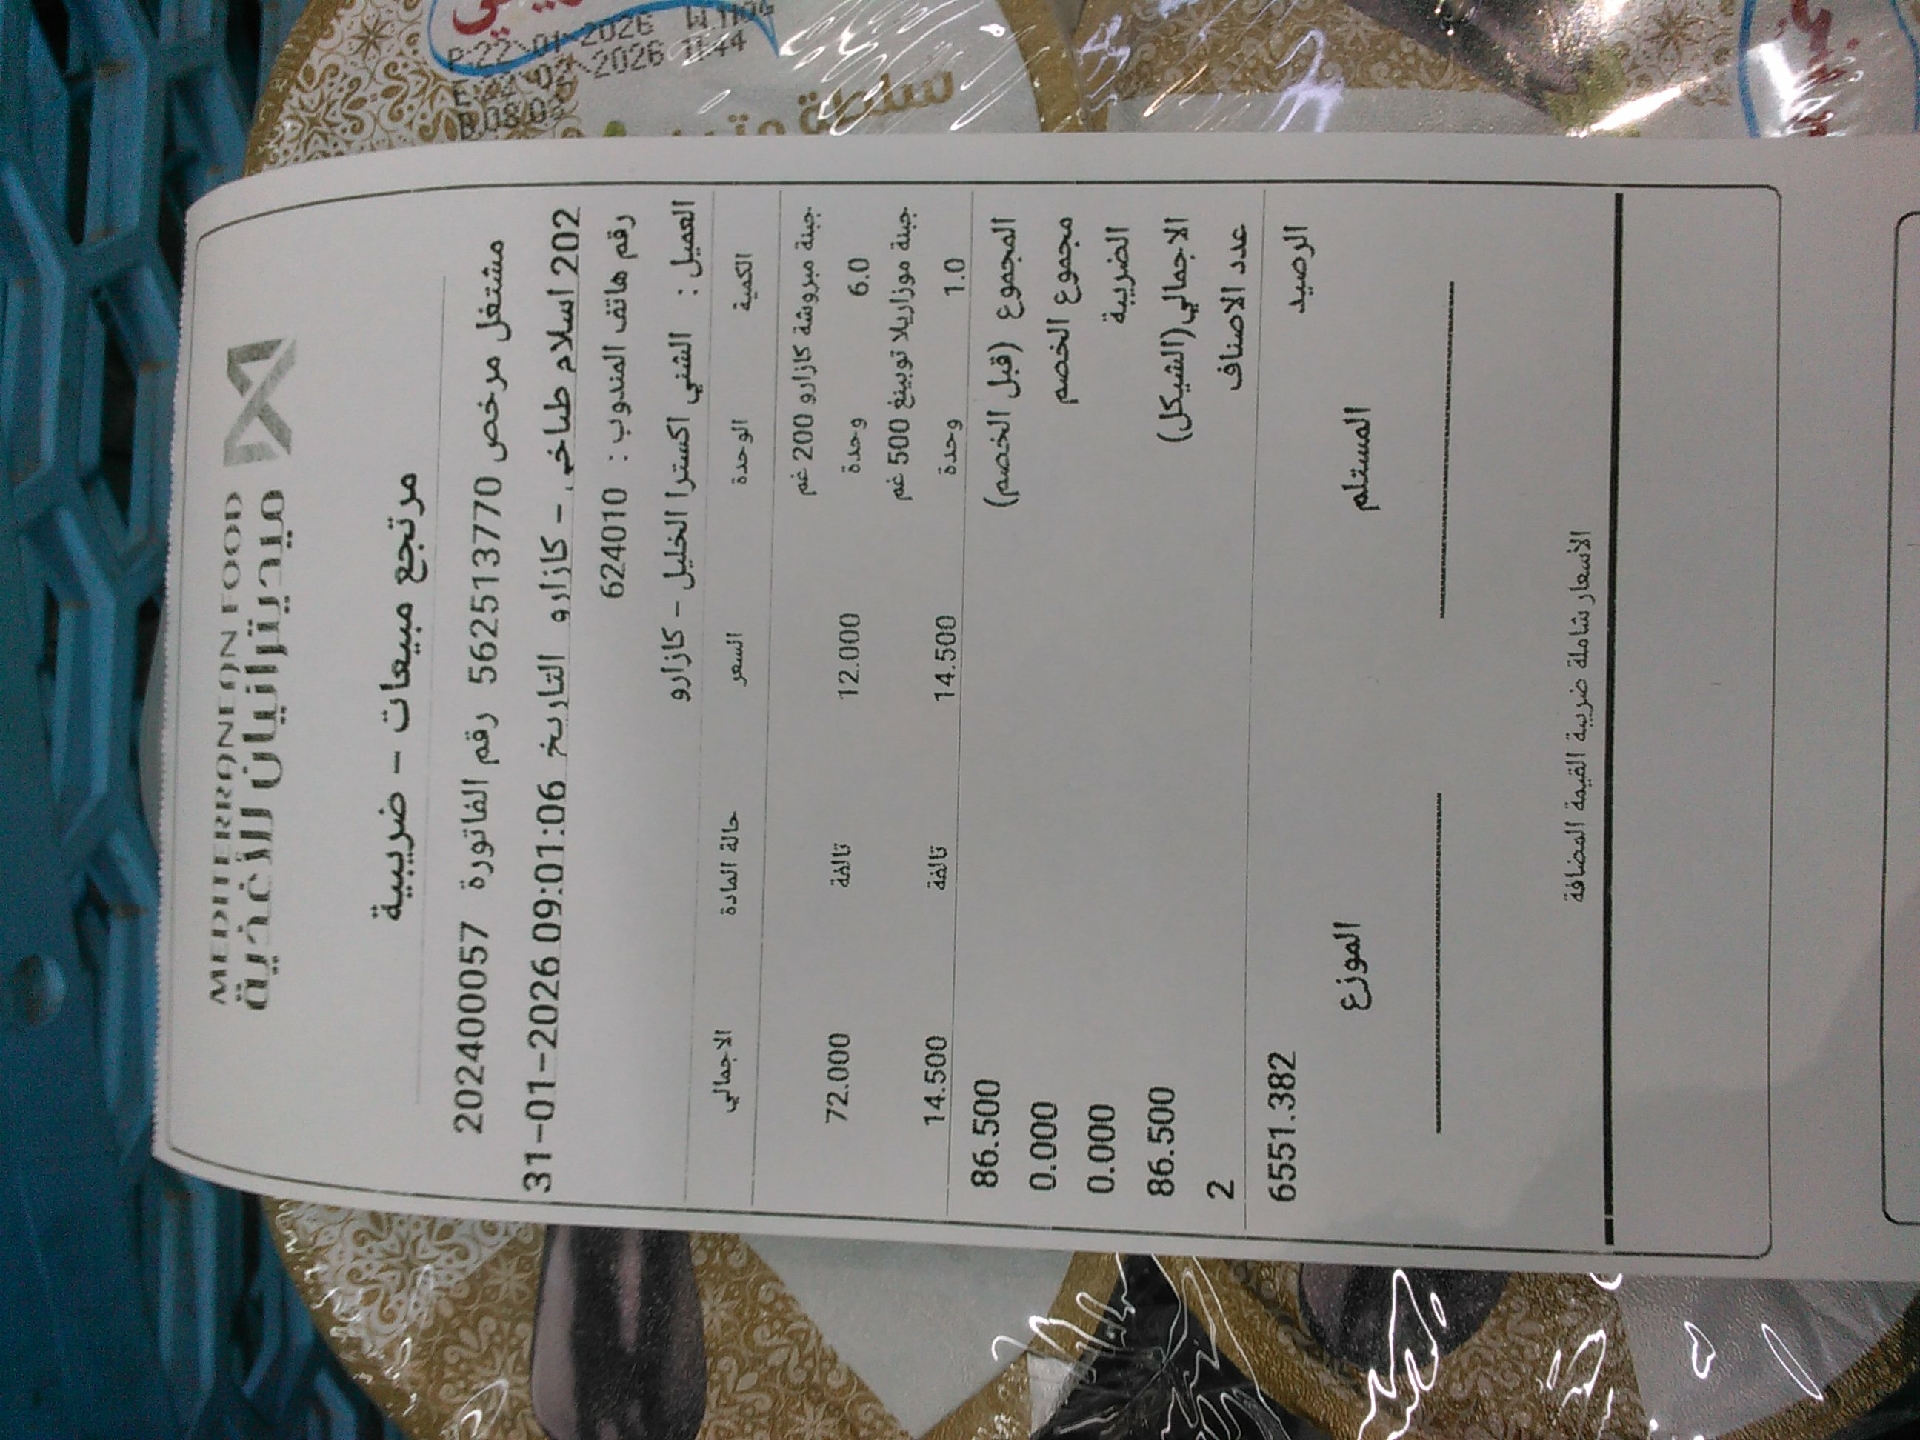 MEDITERRANEAN FOOD
ميديترانيان للأغذية
مرتجع مبيعات - ضريبية
مشتغل مرخص 562513770 رقم الفاتورة 202400057
202 اسلام طباخي - كازارو التاريخ 31-01-2026 09:01:06
رقم هاتف المندوب : 624010
العميل : الشني اكسترا الخليل - كازارو
الكمية الوحدة السعر حالة المادة الاجمالي
جبنة مبروشة كازارو 200 غم
6.0 وحدة 12.000 تالفة 72.000
جبنة موزاريلا توبينغ 500 غم
1.0 وحدة 14.500 تالفة 14.500
المجموع (قبل الخصم) 86.500
مجموع الخصم 0.000
الضريبة 0.000
الاجمالي(الشيكل) 86.500
عدد الاصناف 2
الرصيد 6551.382
المستلم الموزع
الأسعار شاملة ضريبة القيمة المضافة
P:22\01\2026
2026 11:44
سلطة